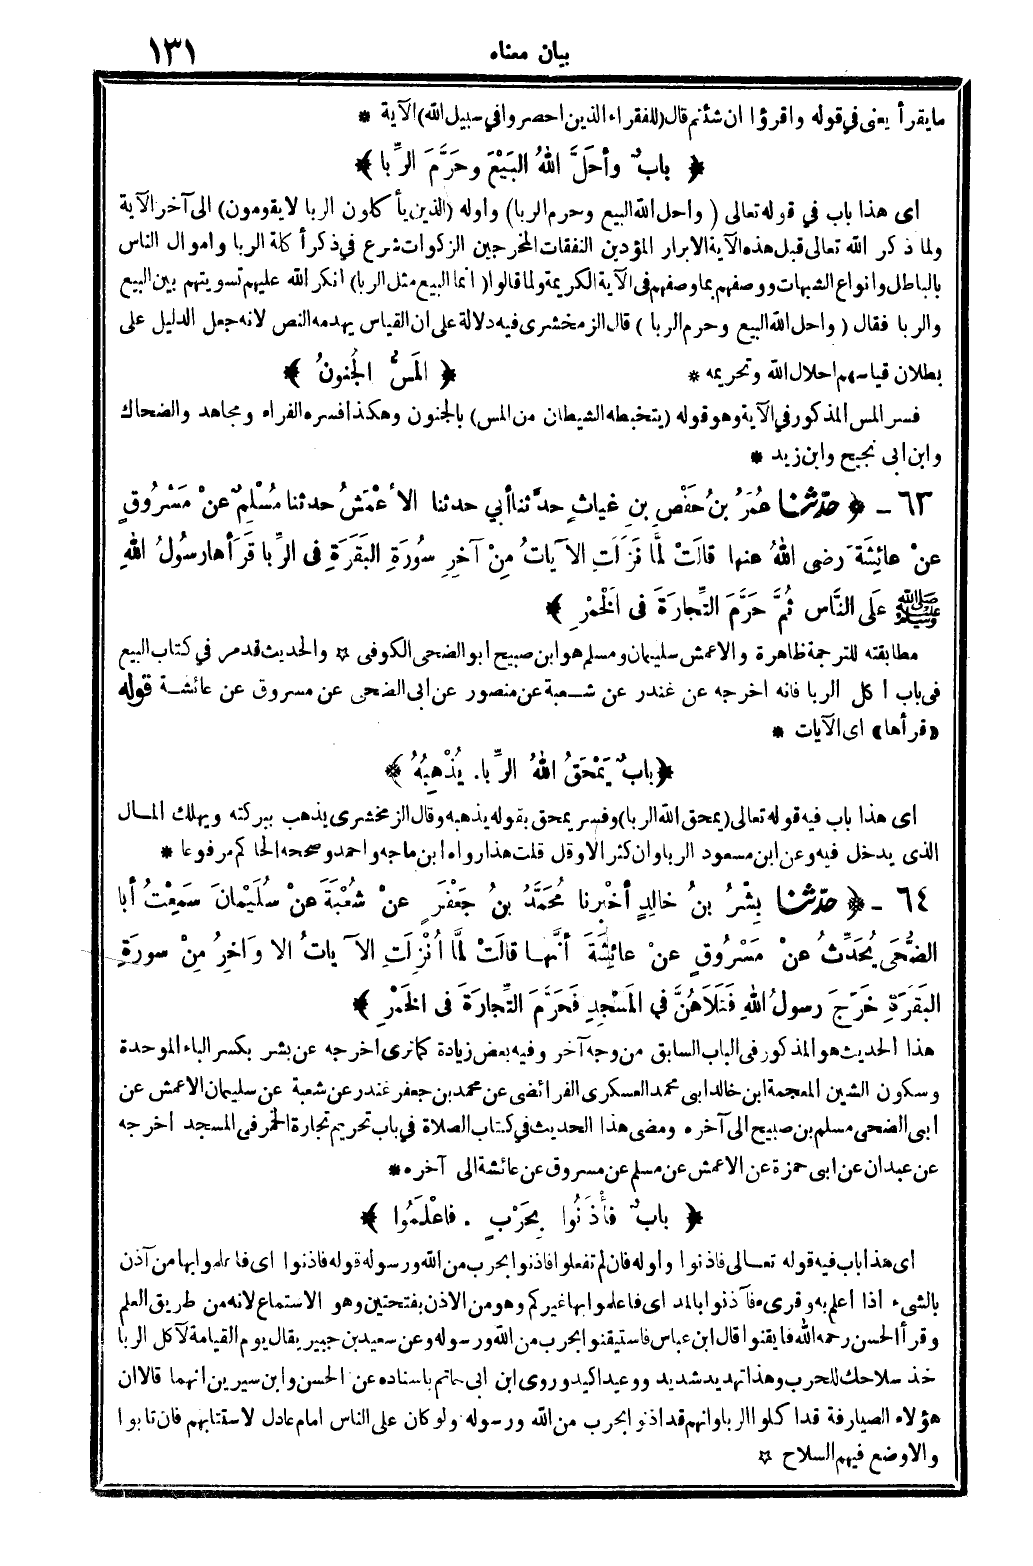 بيان معناه ١٣١
مايقرأ يعنى فى قوله واقرؤا ان شئتم قال (للفقراء الذين احصروا فى سبيل الله) الآية *
﴿ بابٌ وأحَلَّ اللهُ البَيْعَ وحَرَّمَ الرِّبا ﴾
اى هذا باب فى قوله تعالى (واحل الله البيع وحرم الربا) واوله (الذين يأكلون الربا لايقومون) الى آخر الآية
ولما ذكر الله تعالى قبل هذه الآية الابرار المؤدين النفقات المخرجين الزكوات شرع فى ذكر أكلة الربا واموال الناس
بالباطل وانواع الشبهات ووصفهم بما وصفهم فى الآية الكريمة ولما قالوا (انما البيع مثل الربا) انكر الله عليهم تسويتهم بين البيع
والربا فقال (واحل الله البيع وحرم الربا) قال الزمخشرى فيه دلالة على ان القياس يهدمه النص لانه جعل الدليل على
بطلان قياسهم احلال الله وتحريمه * ﴿ المَسُّ الجُنونُ ﴾
فسر المس المذكور فى الآية وهو قوله (يتخبطه الشيطان من المس) بالجنون وهكذا فسره الفراء ومجاهد والضحاك
وابن ابى نجيح وابن زيد *
٦٣ - ﴿ حدّثنا عُمَرُ بنُ حَفْصِ بنِ غياثٍ حدثنا أبي حدثنا الأعْمَشُ حدثنا مُسْلِمٌ عنْ مَسْرُوقٍ
عنْ عائِشَةَ رضى اللهُ عنها قالَتْ لمَّا نَزَلَتِ الآياتُ مِنْ آخِرِ سُورَةِ البَقَرَةِ فى الرِّبا قَرَأها رسُولُ اللهِ
ﷺ عَلَى النَّاسِ ثُمَّ حَرَّمَ التِّجارَةَ فى الخَمْرِ ﴾
مطابقته للترجمة ظاهرة والاعمش سليمان ومسلم هو ابن صبيح ابو الضحى الكوفى ☆ والحديث قد مر فى كتاب البيع
فى باب اكل الربا فانه اخرجه عن غندر عن شعبة عن منصور عن ابى الضحى عن مسروق عن عائشة قوله
«قرأها» اى الآيات *
﴿ بابٌ يَمْحَقُ اللهُ الرِّبا. يُذْهِبُهُ ﴾
اى هذا باب فيه قوله تعالى (يمحق الله الربا) وفسر يمحق بقوله يذهبه وقال الزمخشرى يذهب ببركته ويهلك المال
الذى يدخل فيه وعن ابن مسعود الربا وان كثر الا وقل قلت هذا رواه ابن ماجه واحمد وصححه الحاكم مرفوعا *
٦٤ - ﴿ حدّثنا بِشْرُ بنُ خالِدٍ أخْبرنا مُحَمَّدُ بنُ جَعْفَرٍ عنْ شُعْبَةَ عنْ سُلَيْمانَ سَمِعْتُ أبا
الضُّحَى يُحَدِّثُ عنْ مَسْرُوقٍ عنْ عائِشَةَ أنَّها قالَتْ لمَّا اُنْزِلَتِ الآياتُ الاواخِرُ مِنْ سورَةِ
البَقَرَةِ خَرَجَ رسولُ اللهِ فَتَلَاهُنَّ في المَسْجِدِ فَحَرَّمَ التِّجارَةَ فى الخَمْرِ ﴾
هذا الحديث هو المذكور فى الباب السابق من وجه آخر وفيه بعض زيادة كما ترى اخرجه عن بشر بكسر الباء الموحدة
وسكون الشين المعجمة ابن خالد ابى محمد العسكرى الفرائضى عن محمد بن جعفر غندر عن شعبة عن سليمان الاعمش عن
ابى الضحى مسلم بن صبيح الى آخره ومضى هذا الحديث فى كتاب الصلاة فى باب تحريم تجارة الخمر فى المسجد اخرجه
عن عبدان عن ابى حمزة عن الاعمش عن مسلم عن مسروق عن عائشة الى آخره *
﴿ بابٌ فأْذَنُوا بِحَرْبٍ . فاعْلَمُوا ﴾
اى هذا باب فيه قوله تعالى فاذنوا واوله فان لم تفعلوا فاذنوا بحرب من الله ورسوله قوله فاذنوا اى فاعلموا بها من آذن
بالشىء اذا اعلم به وقرىء فآذنوا بالمد اى فاعلموا بها غيركم وهو من الاذن بفتحتين وهو الاستماع لانه من طريق العلم
وقرأ الحسن رحمه الله فايقنوا قال ابن عباس فاستيقنوا بحرب من الله ورسوله وعن سعيد بن جبير يقال يوم القيامة لآكل الربا
خذ سلاحك للحرب وهذا تهديد شديد ووعيد اكيد وروى ابن ابى حاتم باسناده عن الحسن وابن سيرين انهما قالا ان
هؤلاء الصيارفة قد اكلوا الربا وانهم قد اذنوا بحرب من الله ورسوله ولو كان على الناس امام عادل لاستتابهم فان تابوا
والا وضع فيهم السلاح ☆